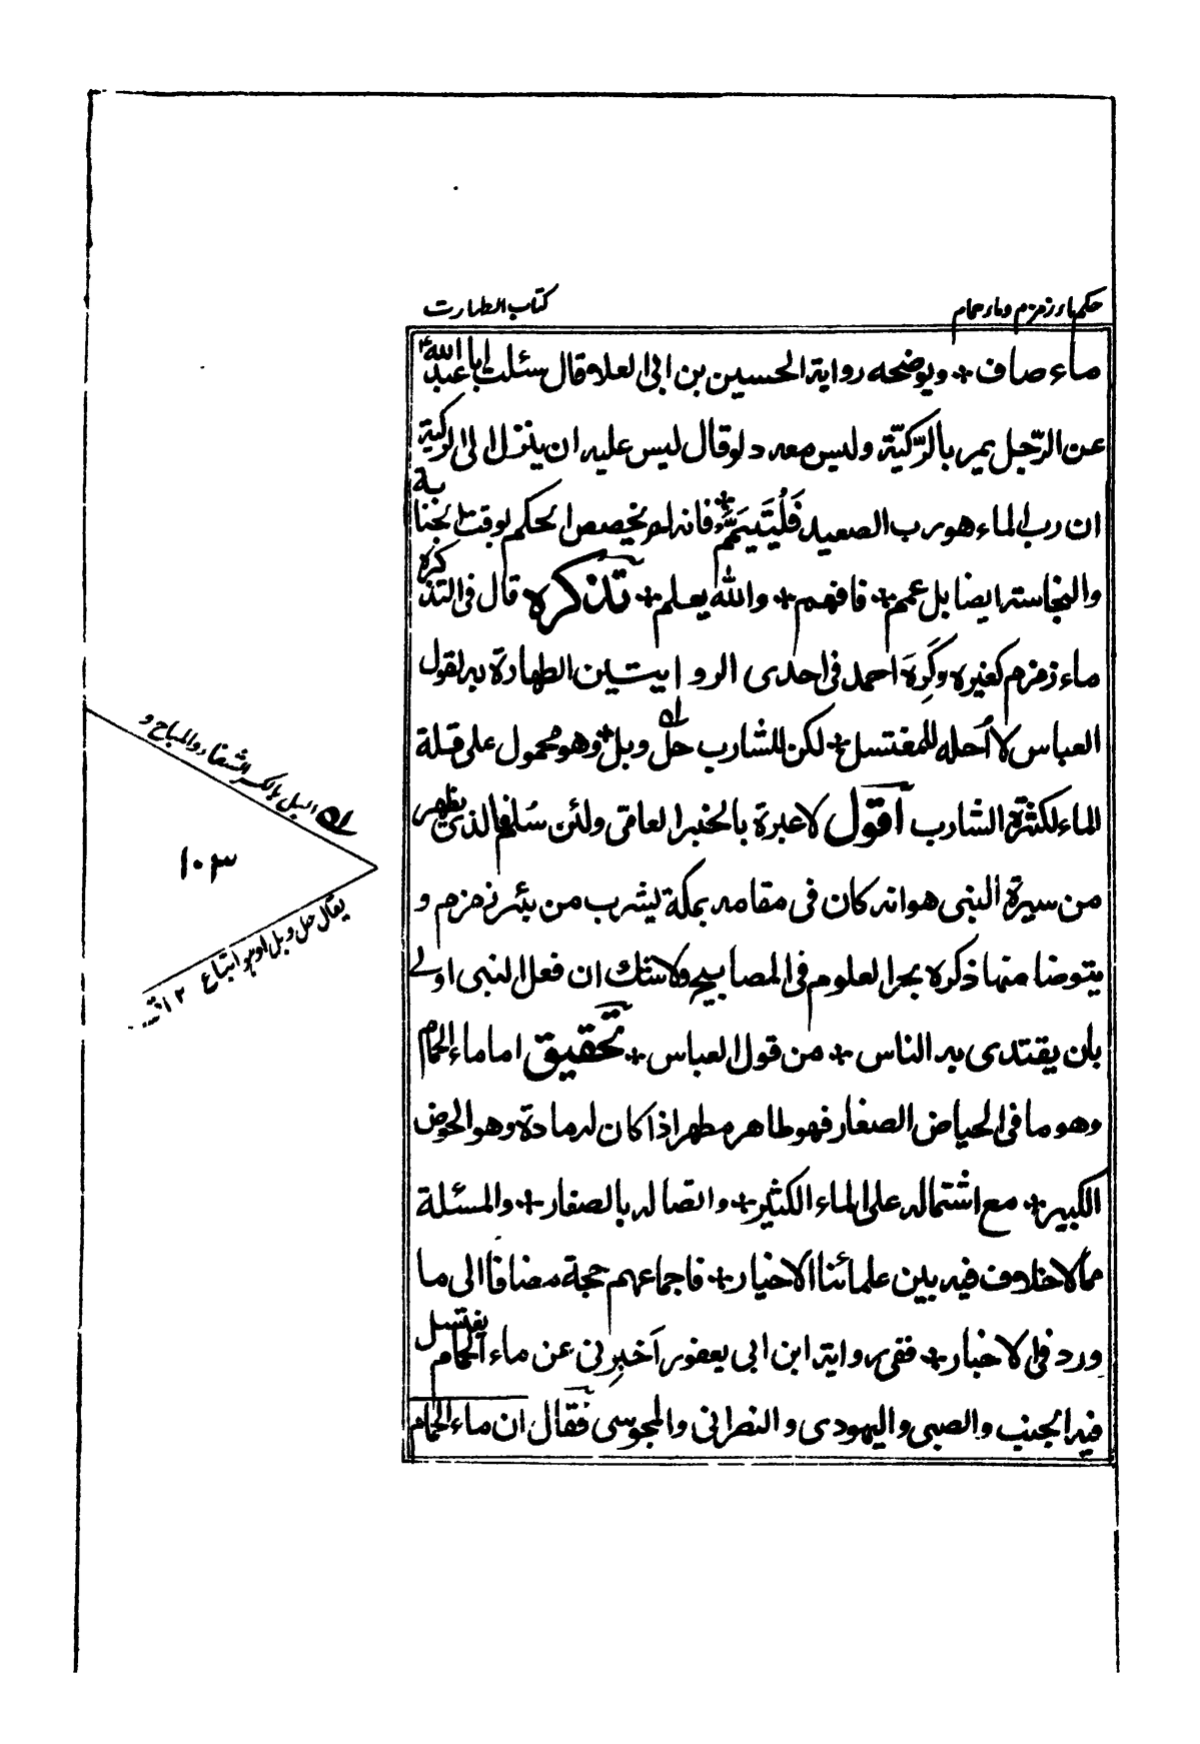 حكم ماء زمزم وماء حمام
كتاب الطهارت
ماء صاف + ويوضحه رواية الحسين بن ابى العلاء قال سئلت ابا عبد الله
عن الرّجل يمر بالرّكيّة وليس معه دلو قال ليس عليه ان ينزل الى الركية
ان رب الماء هو رب الصعيد فَلْيَتَيَمَّمْ + فانه لم يخصص الحكم لوقت الجنابة
والنجاسة ايضا بل عمم + فافهم + والله يعلم + تذكره قال فى التذكرة
ماء زمزم كغيره وكَرِهَ احمد فى احدى الروايتين الطهارة به لقول
العباس لا اُحله للمغتسل + لكن للشارب حلّ وبل + وهو محمول على قلة
الماء لكثرة الشارب اقول لا عبرة بالخبر العامى ولئن سُلم فالذى يظهر
من سيرة النبى هو انه كان فى مقامه بمكة يشرب من بئر زمزم و
يتوضا منها ذكره بحر العلوم فى المصابيح ولا شك ان فعل النبى اولے
بان يقتدى به الناس + من قول العباس + تحقيق اما ماء الحمام
وهو ما فى الحياض الصغار فهو طاهر مطهر اذا كان له مادة وهو الحوض
الكبير + مع اشتماله على الماء الكثير + واتصاله بالصغار + والمسئلة
مما لا خلاف فيه بين علمائنا الاخيار + فاجماعهم حجة مضافا الى ما
ورد فى الاخبار + ففى رواية ابن ابى يعفور اَخبِرنى عن ماء الحمام يغتسل
فيه الجنب والصبى واليهودى والنصرانى والمجوسى فقال ان ماء الحمام
البل بالكسر الشفاء والمباح و
١٠٣
يقال حل وبل او هو اتباع ١٢